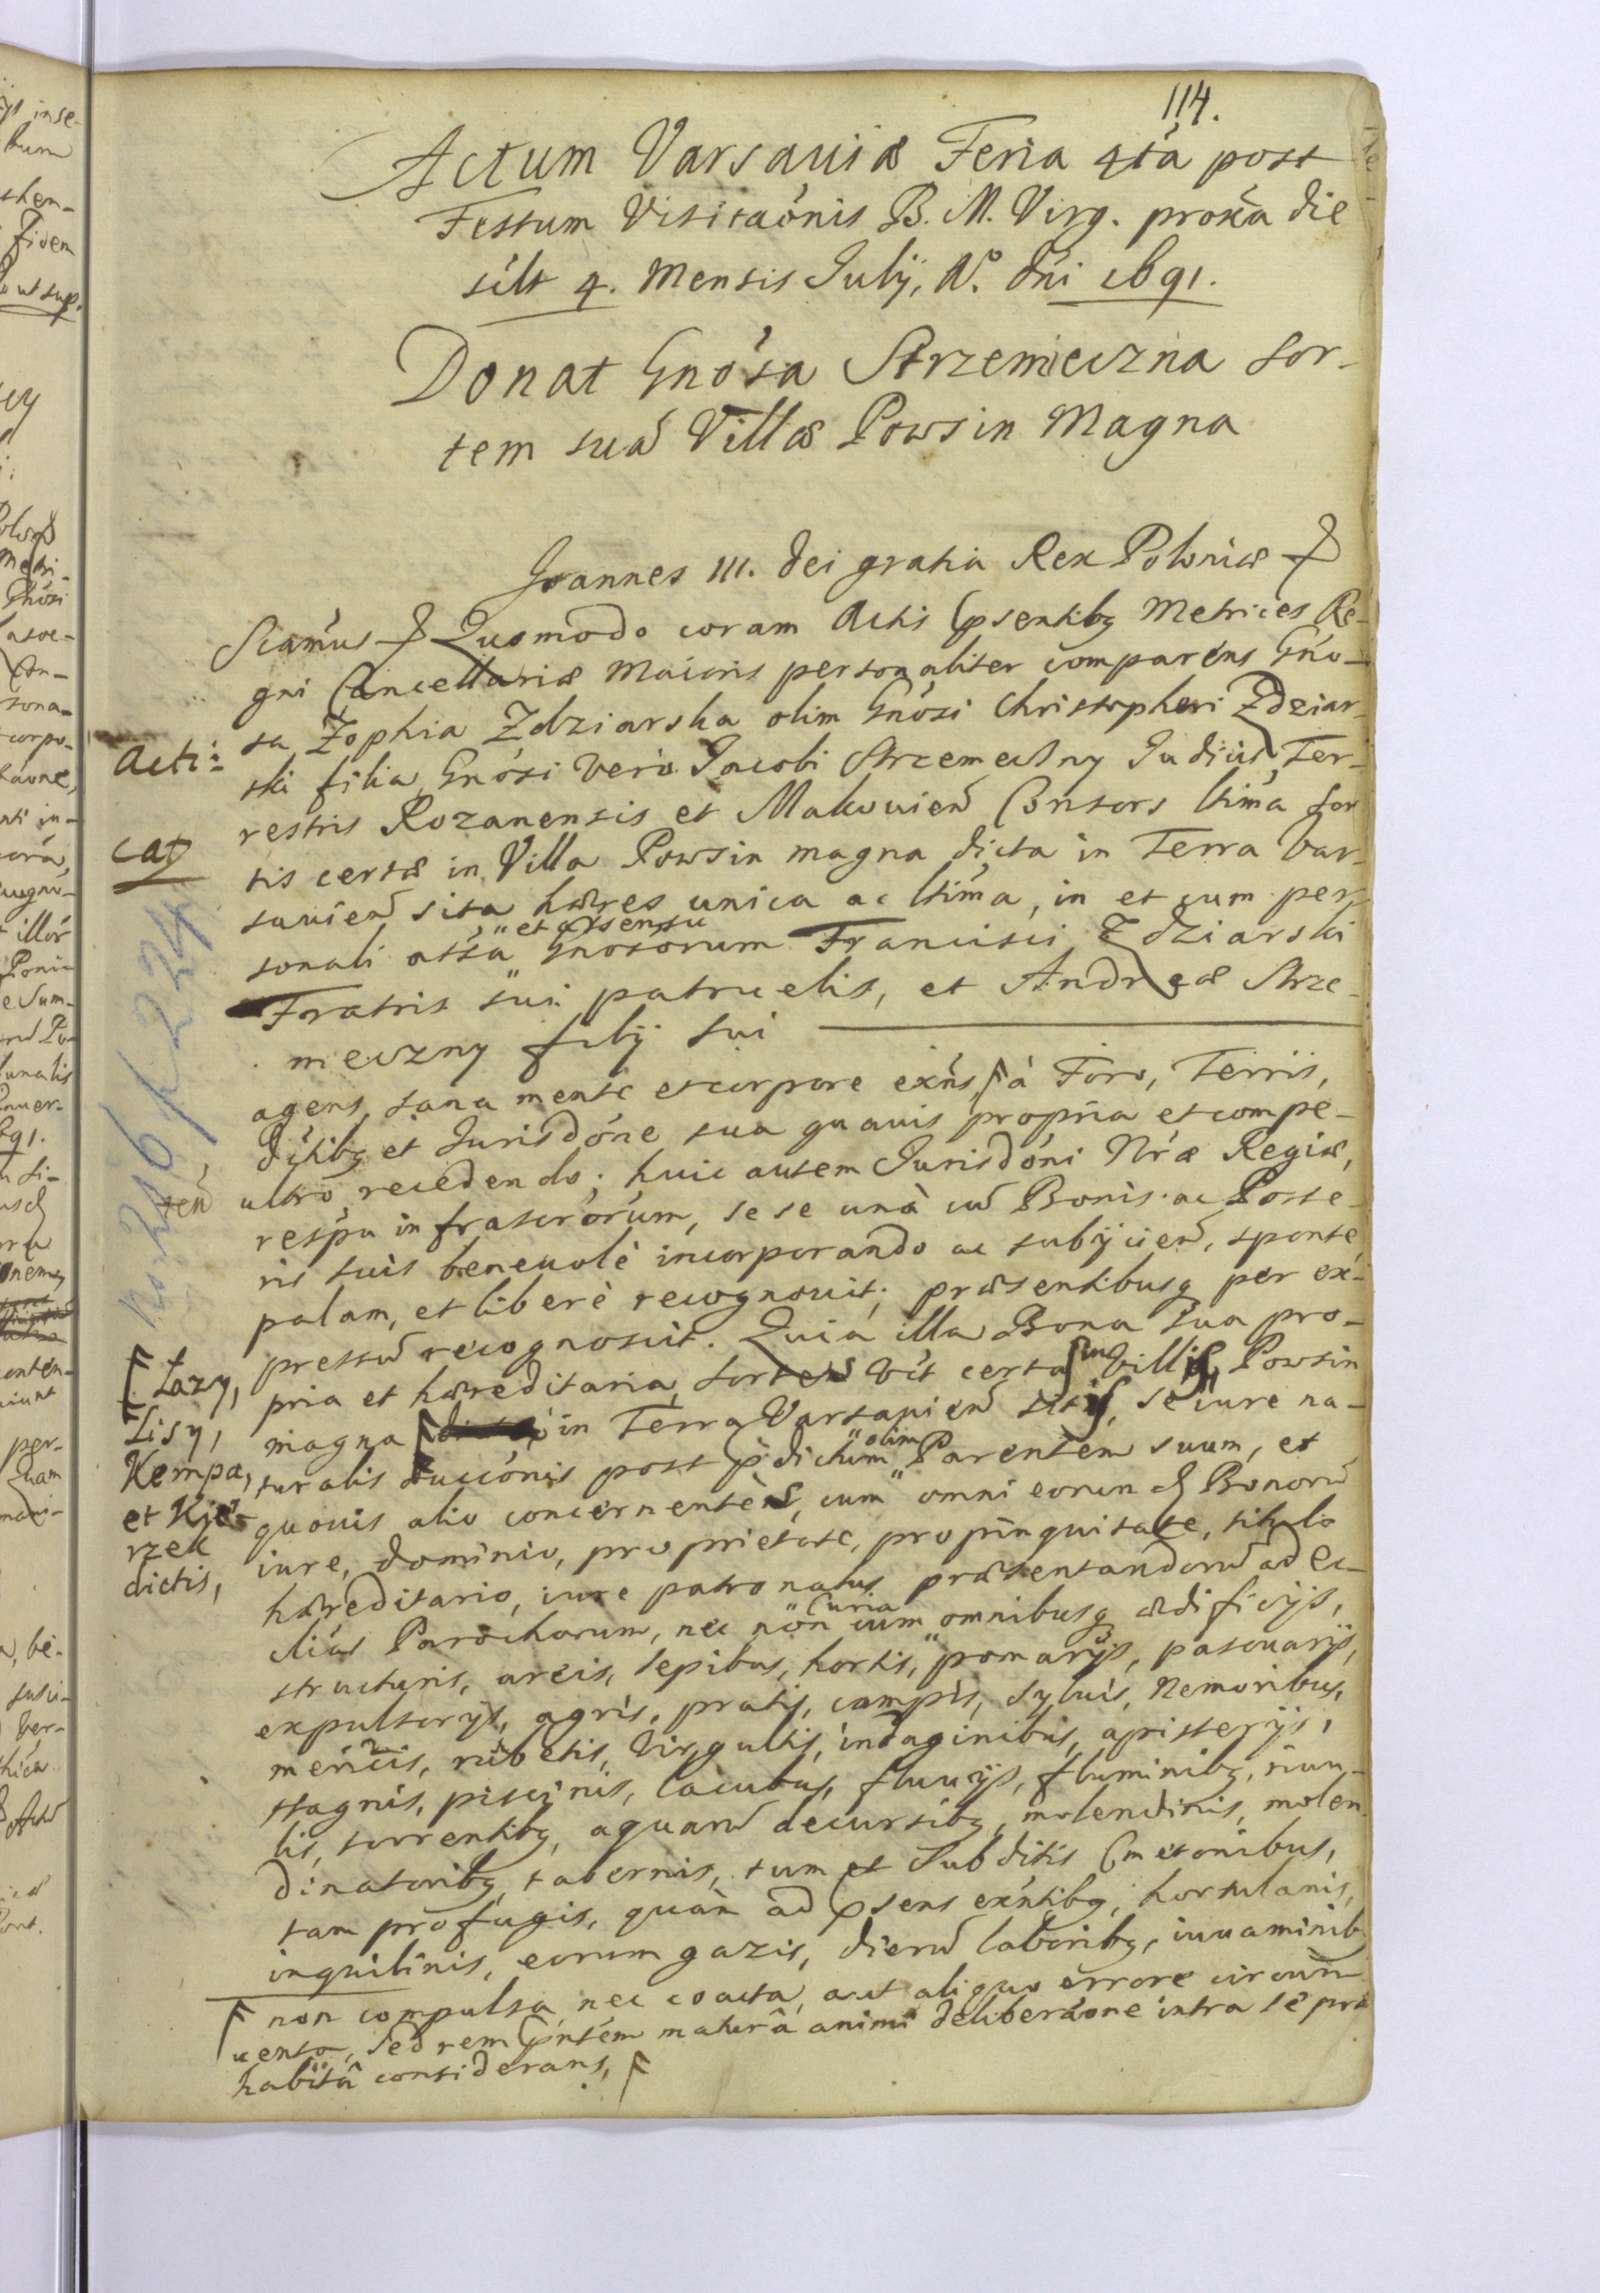 114.
Actum Varsaviæ Feria 4ta post
Festum Visitaõnis B. M. Virg. proxa die
silt 4. Mensis July, Ao. dni 1691.
Donat Gnosa Strzemieczna sor-
tem suã Villæ Powsin Magna
Joannes III. Dei gratia Rex Poloniæ
Scamus Quomodo coram Actis psentibq Metrices Re-
gni Cancellariæ Maioris personaliter comparens Gno-
sa Zophia Zdziarska olim Gnosi Christopheri Zdziar-
ski filia, Gnosi vero Jacobi Strzemeczny Judicis Ter-
restris Rozanensis et Makouien Consors ltima sor
tis certæ in Villa Powsin magna dicta in Terra Var-
sauien sita hæres unica ac ltima, in et cum per
sonali assa "et assensu" Gnosorum Francisci Zdziarski
Fratris sui patruelis, et Andreæ Strze-
meczny filij sui
agens, sana mente et corpore exns, à Foro, Terris,
Dctibq et Jurisdone sua quauis propria et compe-
ten ultro recedendo; huic autem Jurisdoni Nræ Regiæ,
respu infrascrorum, sese unà cũ Bonis ac Poste-
ris suis beneuolè incorporando ac subijcien, sponte
palam, et liberè recognouit; præsentibusq per ex-
pressũ recognoscit. Quia illa Bona sua pro-
pria et hæreditaria, sortes vt certas in Villis, Powsin
magna in Terra Varsauien sitis, se iure na-
turalis succonis post pdictum "olim" Parentem suum, et
quouis alio concernentes, cum omni eorund Bonorũ
iure, dominio, proprietate, propinquitate, titulo
hæreditario, iure patronatus præsentandorũ ad Ec-
clias Parochorum, nec non cum omnibusq ædificijs,
structuris, areis, sepibus, hortis, "Curia" pomarijs, pascuarijs,
expulsorijs, agris, pratis, campis, syluis, nemoribus,
mericis, rubetis, virgultis, indaginibus, apisterijs,
stagnis, piscinis, lacubus, fluuijs, fluminibq, riuu-
lis, torrentibq, aquarũ decursibq, molendinis, molen-
dinatoribq, tabernis, tum et Subditis Cmetonibus,
tam profugis, quàm ad psens exntibq, hortulanis,
inquilinis, eorum gazis, dierũ laboribq, iuuaminib
non compulsa, nec coacta, aut aliquo errore circum-
uenta, sed rem pntem maturâ animi deliberaone intra se præ
habitâ considerans,
Acti-
catq
Lazy,
Lisy,
Kempa,
et Kie-
rzek
dictis,